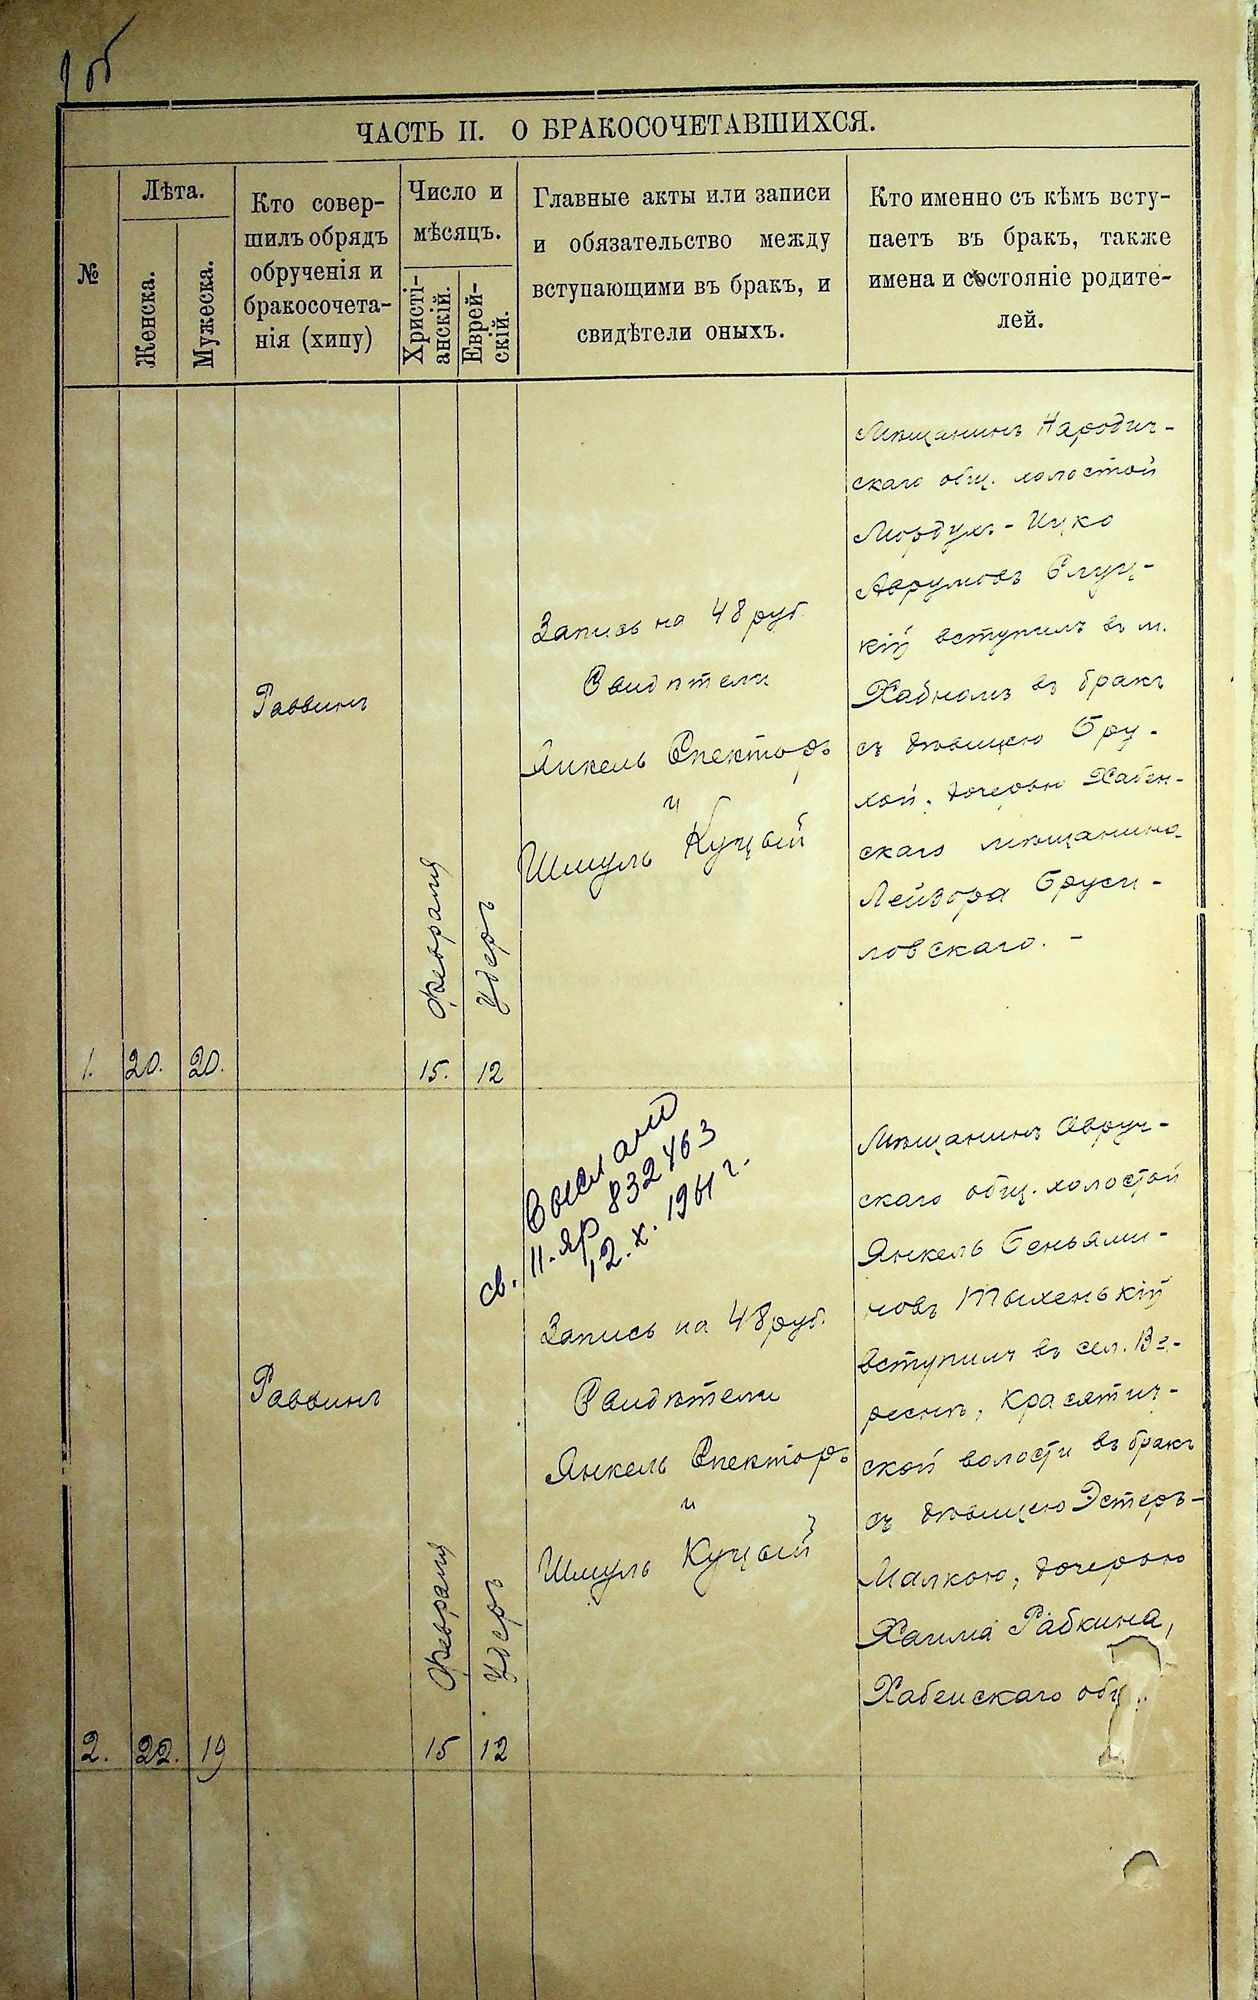 1 об
ЧАСТЬ II. О БРАКОСОЧЕТАВШИХСЯ.
№
Лѣта.
Женска.
Мужеска.
Кто совер-
шилъ обрядъ
обрученія и
бракосочета-
нія (хипу)
Число и
мѣсяцъ.
Христі-
анскій.
Еврей-
скій.
Главные акты или записи
и обязательство между
вступающими въ бракъ, и
свидѣтели оныхъ.
Кто именно съ кѣмъ всту-
паетъ въ бракъ, также
имена и состояніе родите-
лей.
1.
20.
20.
Раввинъ
Февраля
15.
Удеръ
12
Запись на 48 руб.
Свидѣтели
Янкель Спекторъ
и
Шмуль Куцый
Мѣщанинъ Народич-
скаго общ. холостой
Мордухъ-Ицко
Аврумовъ Слуц-
кій вступилъ въ м.
Хабномъ въ бракъ
съ дѣвицею Бру-
хой, дочерью Хабен-
скаго мѣщанина
Лейзора Бруси-
ловскаго. -
2.
22.
19
Раввинъ
Февраля
15
Удеръ
12
Выслано
св. II-ЯР 832463
12.X.1961 г.
Запись на 48 руб.
Свидѣтели
Янкель Спекторъ
и
Шмуль Куцый
Мѣщанинъ Овруч-
скаго общ. холостой
Янкель Беньями-
новъ Тыхенькій
вступилъ въ сел. Ве-
реснѣ, Красятич-
ской волости въ бракъ
съ дѣвицею Эстеръ-
Малкою, дочерью
Хаима Рабкина,
Хабенскаго общ.